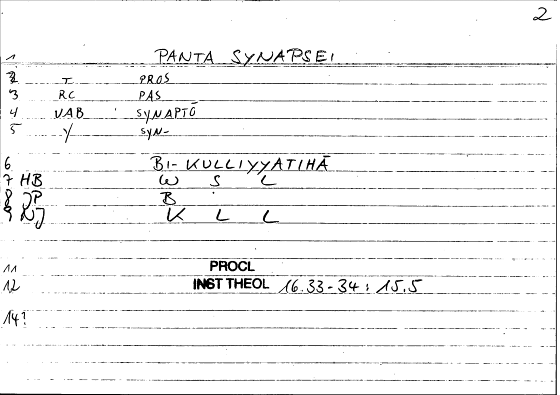 2
1 PANTA SYNAPSEI
2 T PROS
3 RC PAS
4 VAB SYNAPTŌ
5 Y SYN-
6 BI-KULLIYYATIHĀ
7 HB W S L
8 JP B
9 NJ K L L
11 PROCL
12 INST THEOL 16.33-34 : 15.5
14?